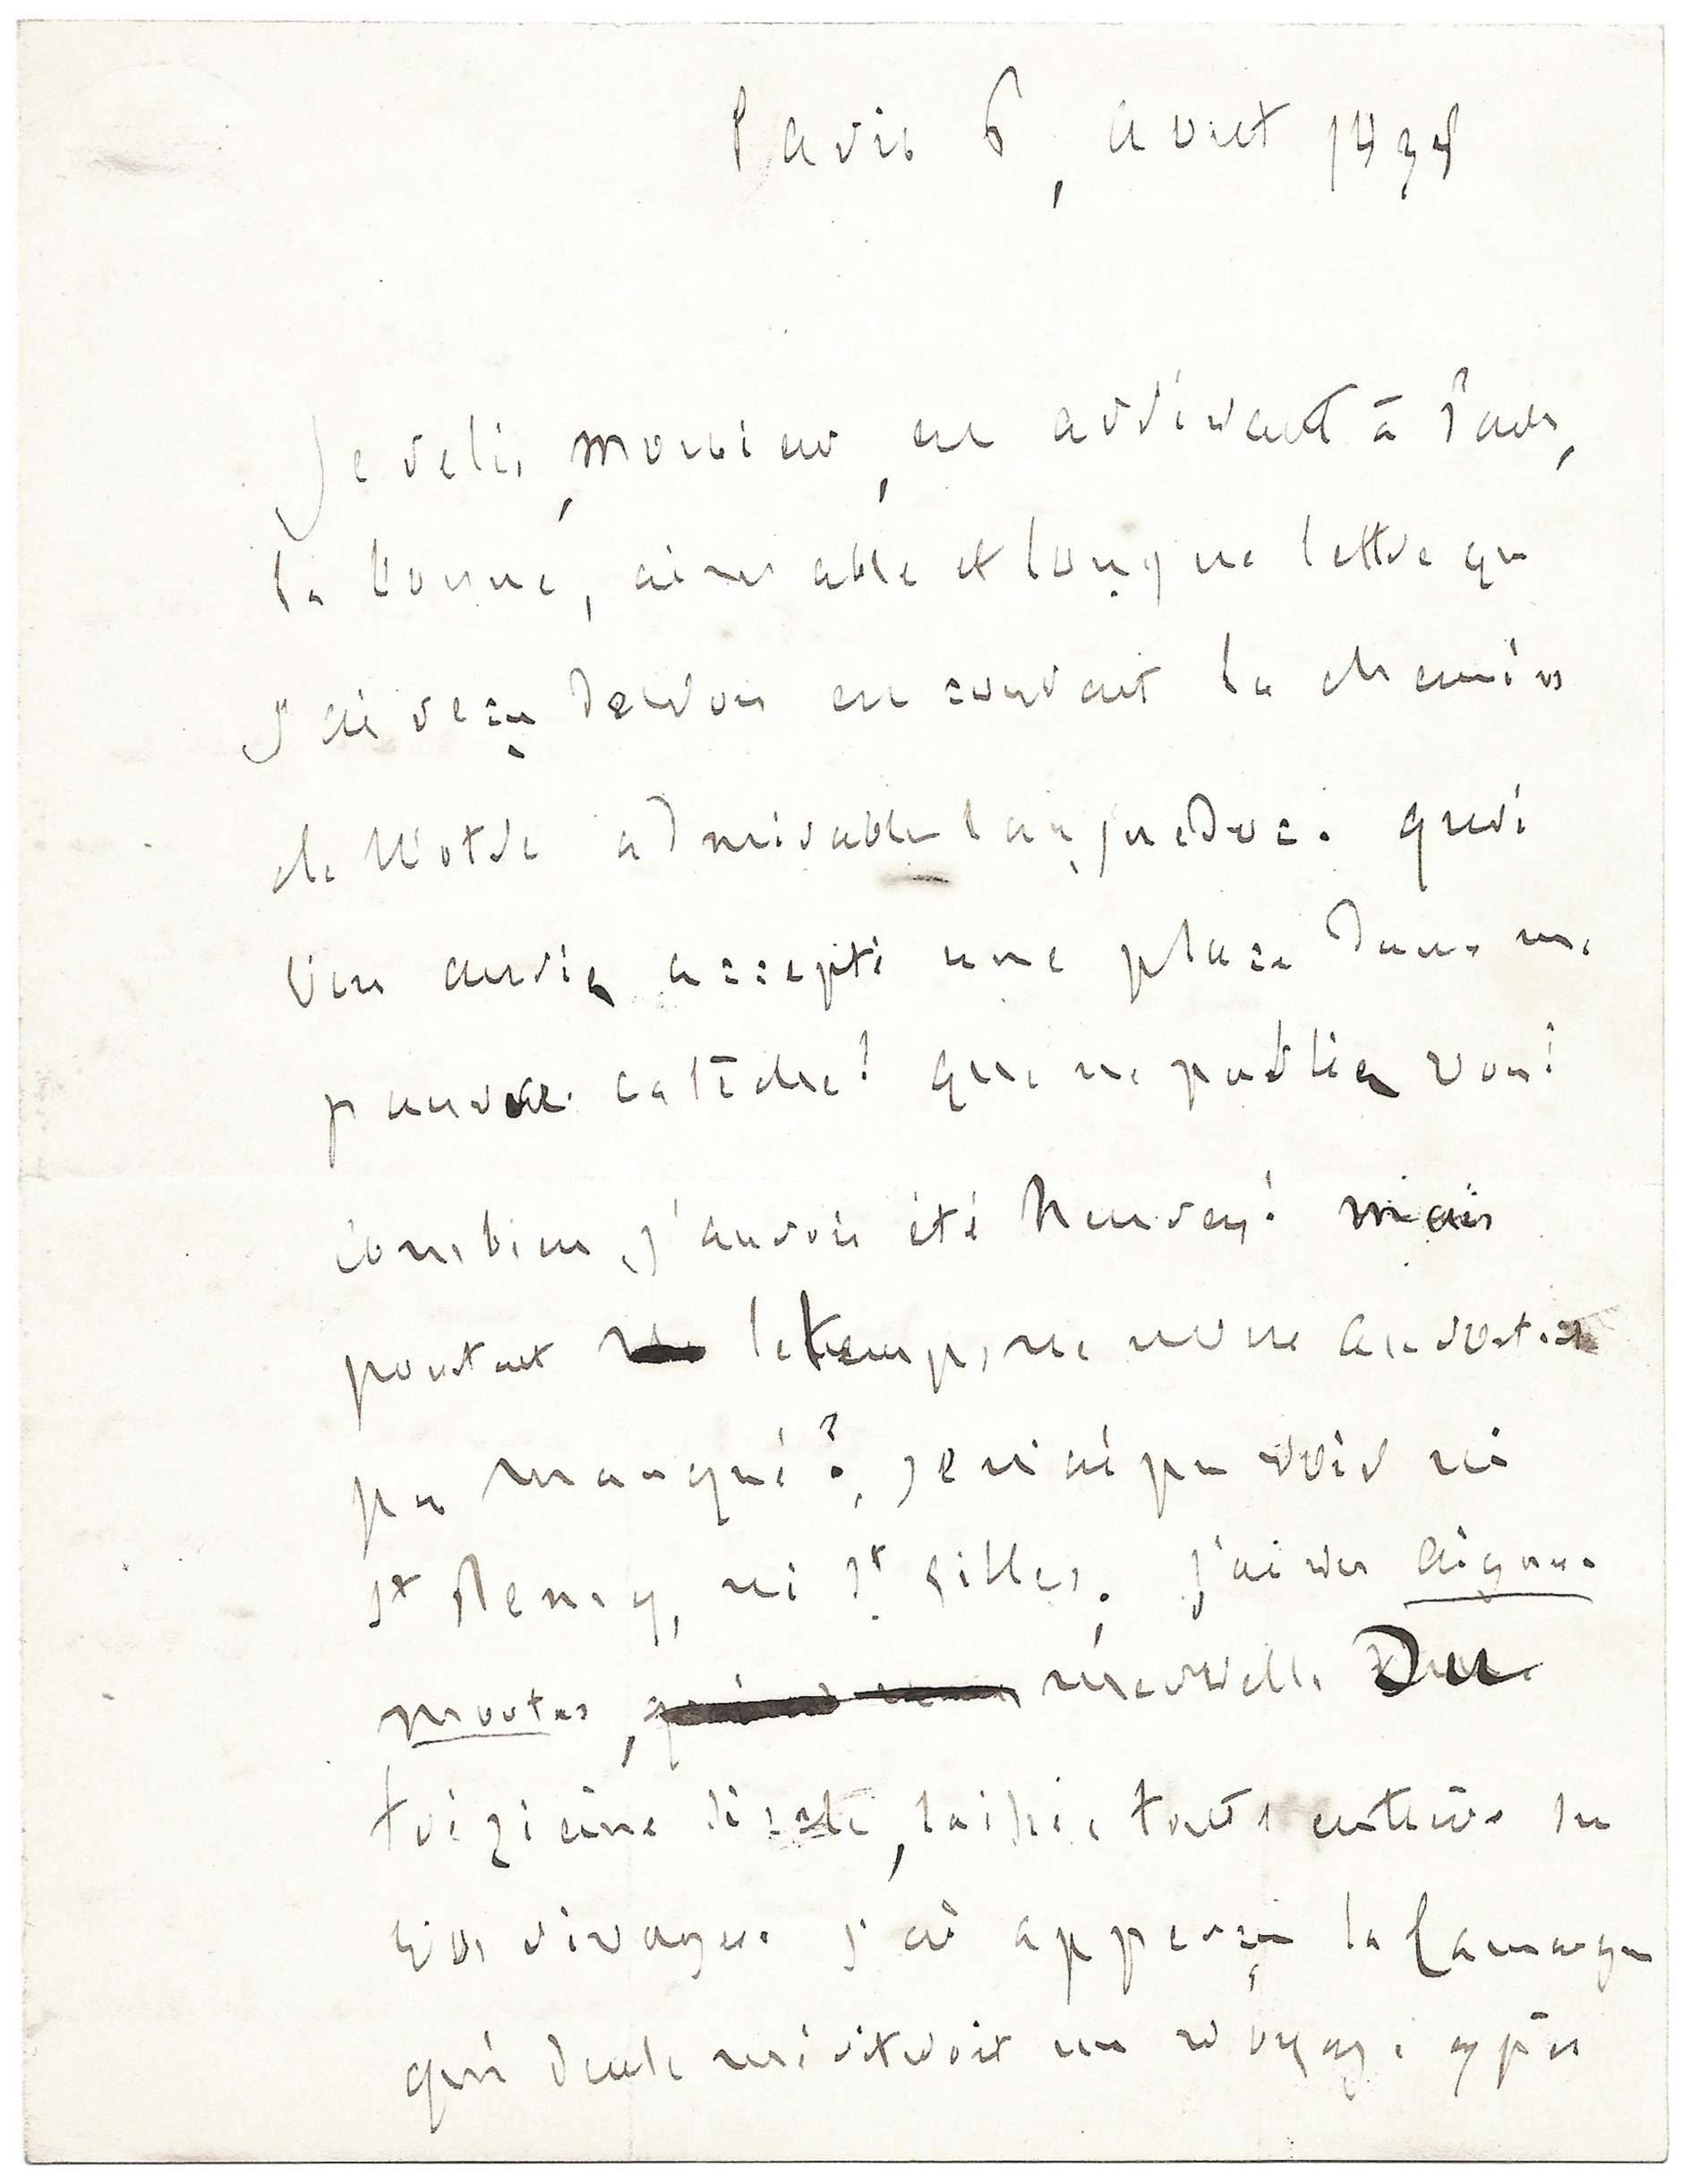 Paris 6, aout 1838
Je relis, Monsieur, en arrivant à Paris,
la bonne, aimable et longue lettre que
j'ai reçu de vous en courant les chemins
de Votre admirable Languedoc. quoi
Vous auriez accepté une place dans ma
pauvre calêche! que ne parliez vous!
combien j'aurois été heureux! mais
pourtant le temps ne nous auroit-il
pas manqué?, je n'ai pu voir ni
St Remy, ni St Gilles; j'ai vu Aigues
mortes, merveille Du
treizième siecle, laissée toute entière sur
vos rivages. j'ai apperçu la Camargue
qui seule méritroit un voyage exprès